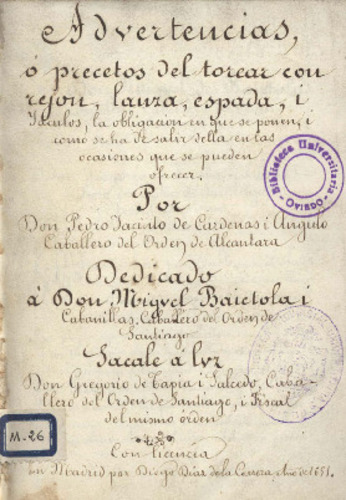 Advertencias,
ó precetos del torear con
rejon, lanza, espada, i
Jáculos, la obligacion en que se ponen, i
como se ha de salir della en las
ocasiones que se pueden
ofrecer.
Por
Don Pedro Jacinto de Cardenas i Angulo
Caballero del Orden de Alcantara
Dedicado
á Don Migvel Baietola i
Cabanillas, Caballero del Orden de
Santiago
Sacale á lvz
Don Gregorio de Tapia i Salcedo, Caba-
llero del Orden de Santiago, i Fiscal
del mismo orden
Con licencia
en Madrid por Diego Diaz de la Carrera Año de 1651.
Biblioteca Universitaria
Oviedo
M-26